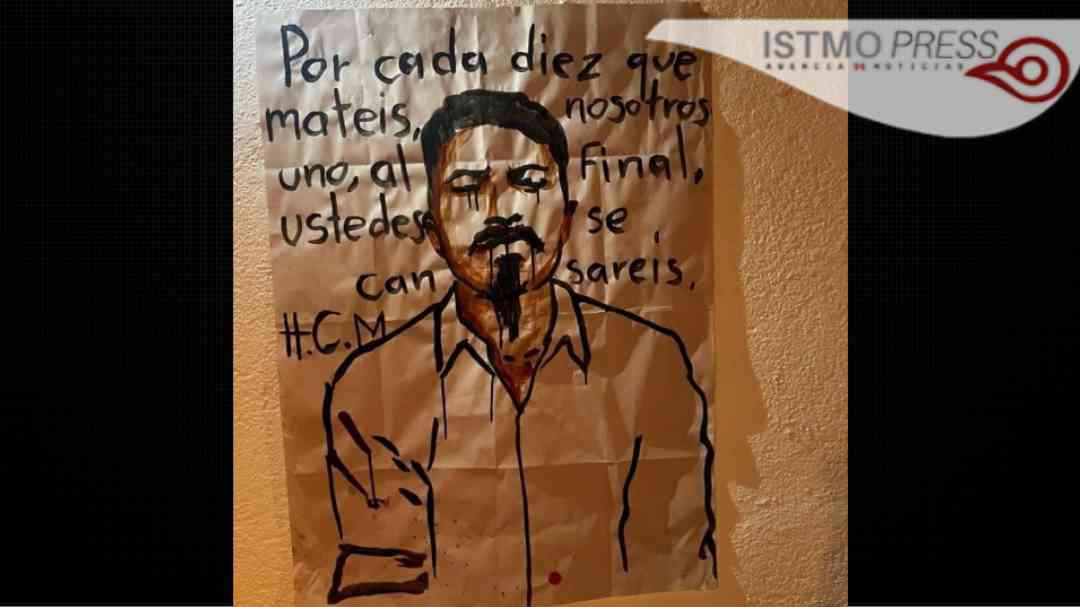 Por cada diez que
mateis, nosotros
uno, al final,
ustedes se
cansareis.
H.C.M
ISTMO PRESS
AGENCIA DE NOTICIAS